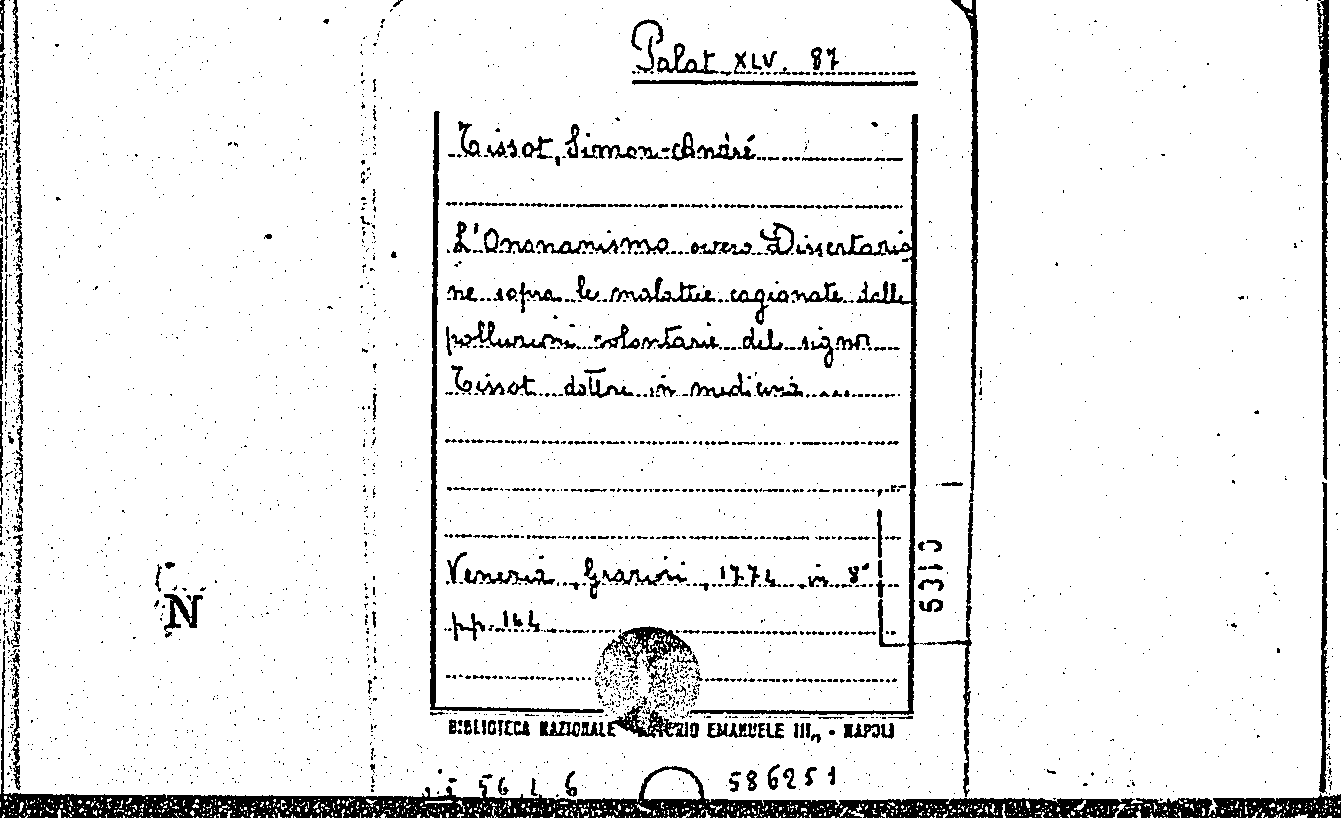 Palat XLV. 87
Tissot, Simon-André
L'Onananismo ovvero Dissertazio
ne sopra le malattie cagionate dalle
polluzioni volontarie del signor
Tissot dottore in medicina ...
Venezia, Graziosi, 1774 in 8°
pp. 144
5310
N
BIBLIOTECA NAZIONALE VITTORIO EMANUELE III„ - NAPOLI
56 L 6
586251